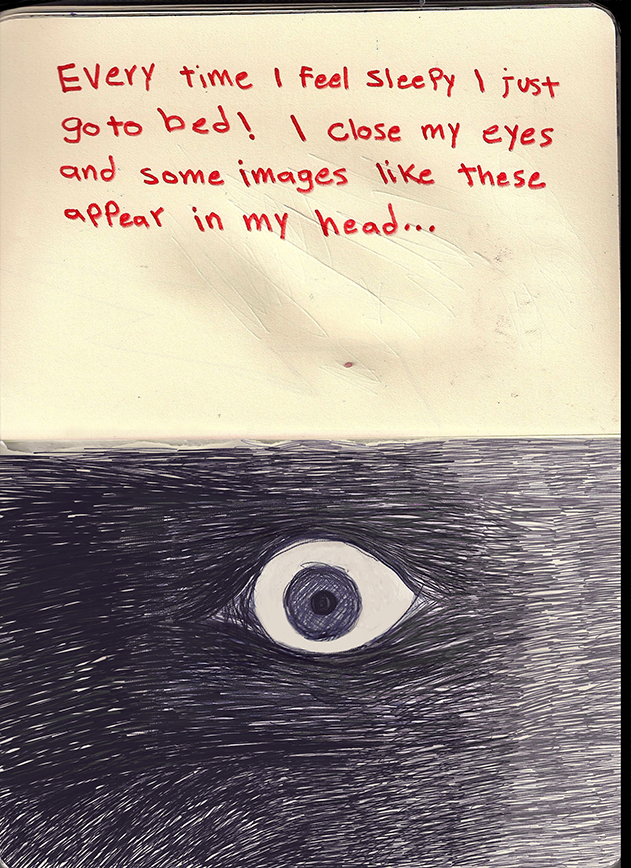 Every time I feel sleepy I just
go to bed! I close my eyes
and some images like these
appear in my head...